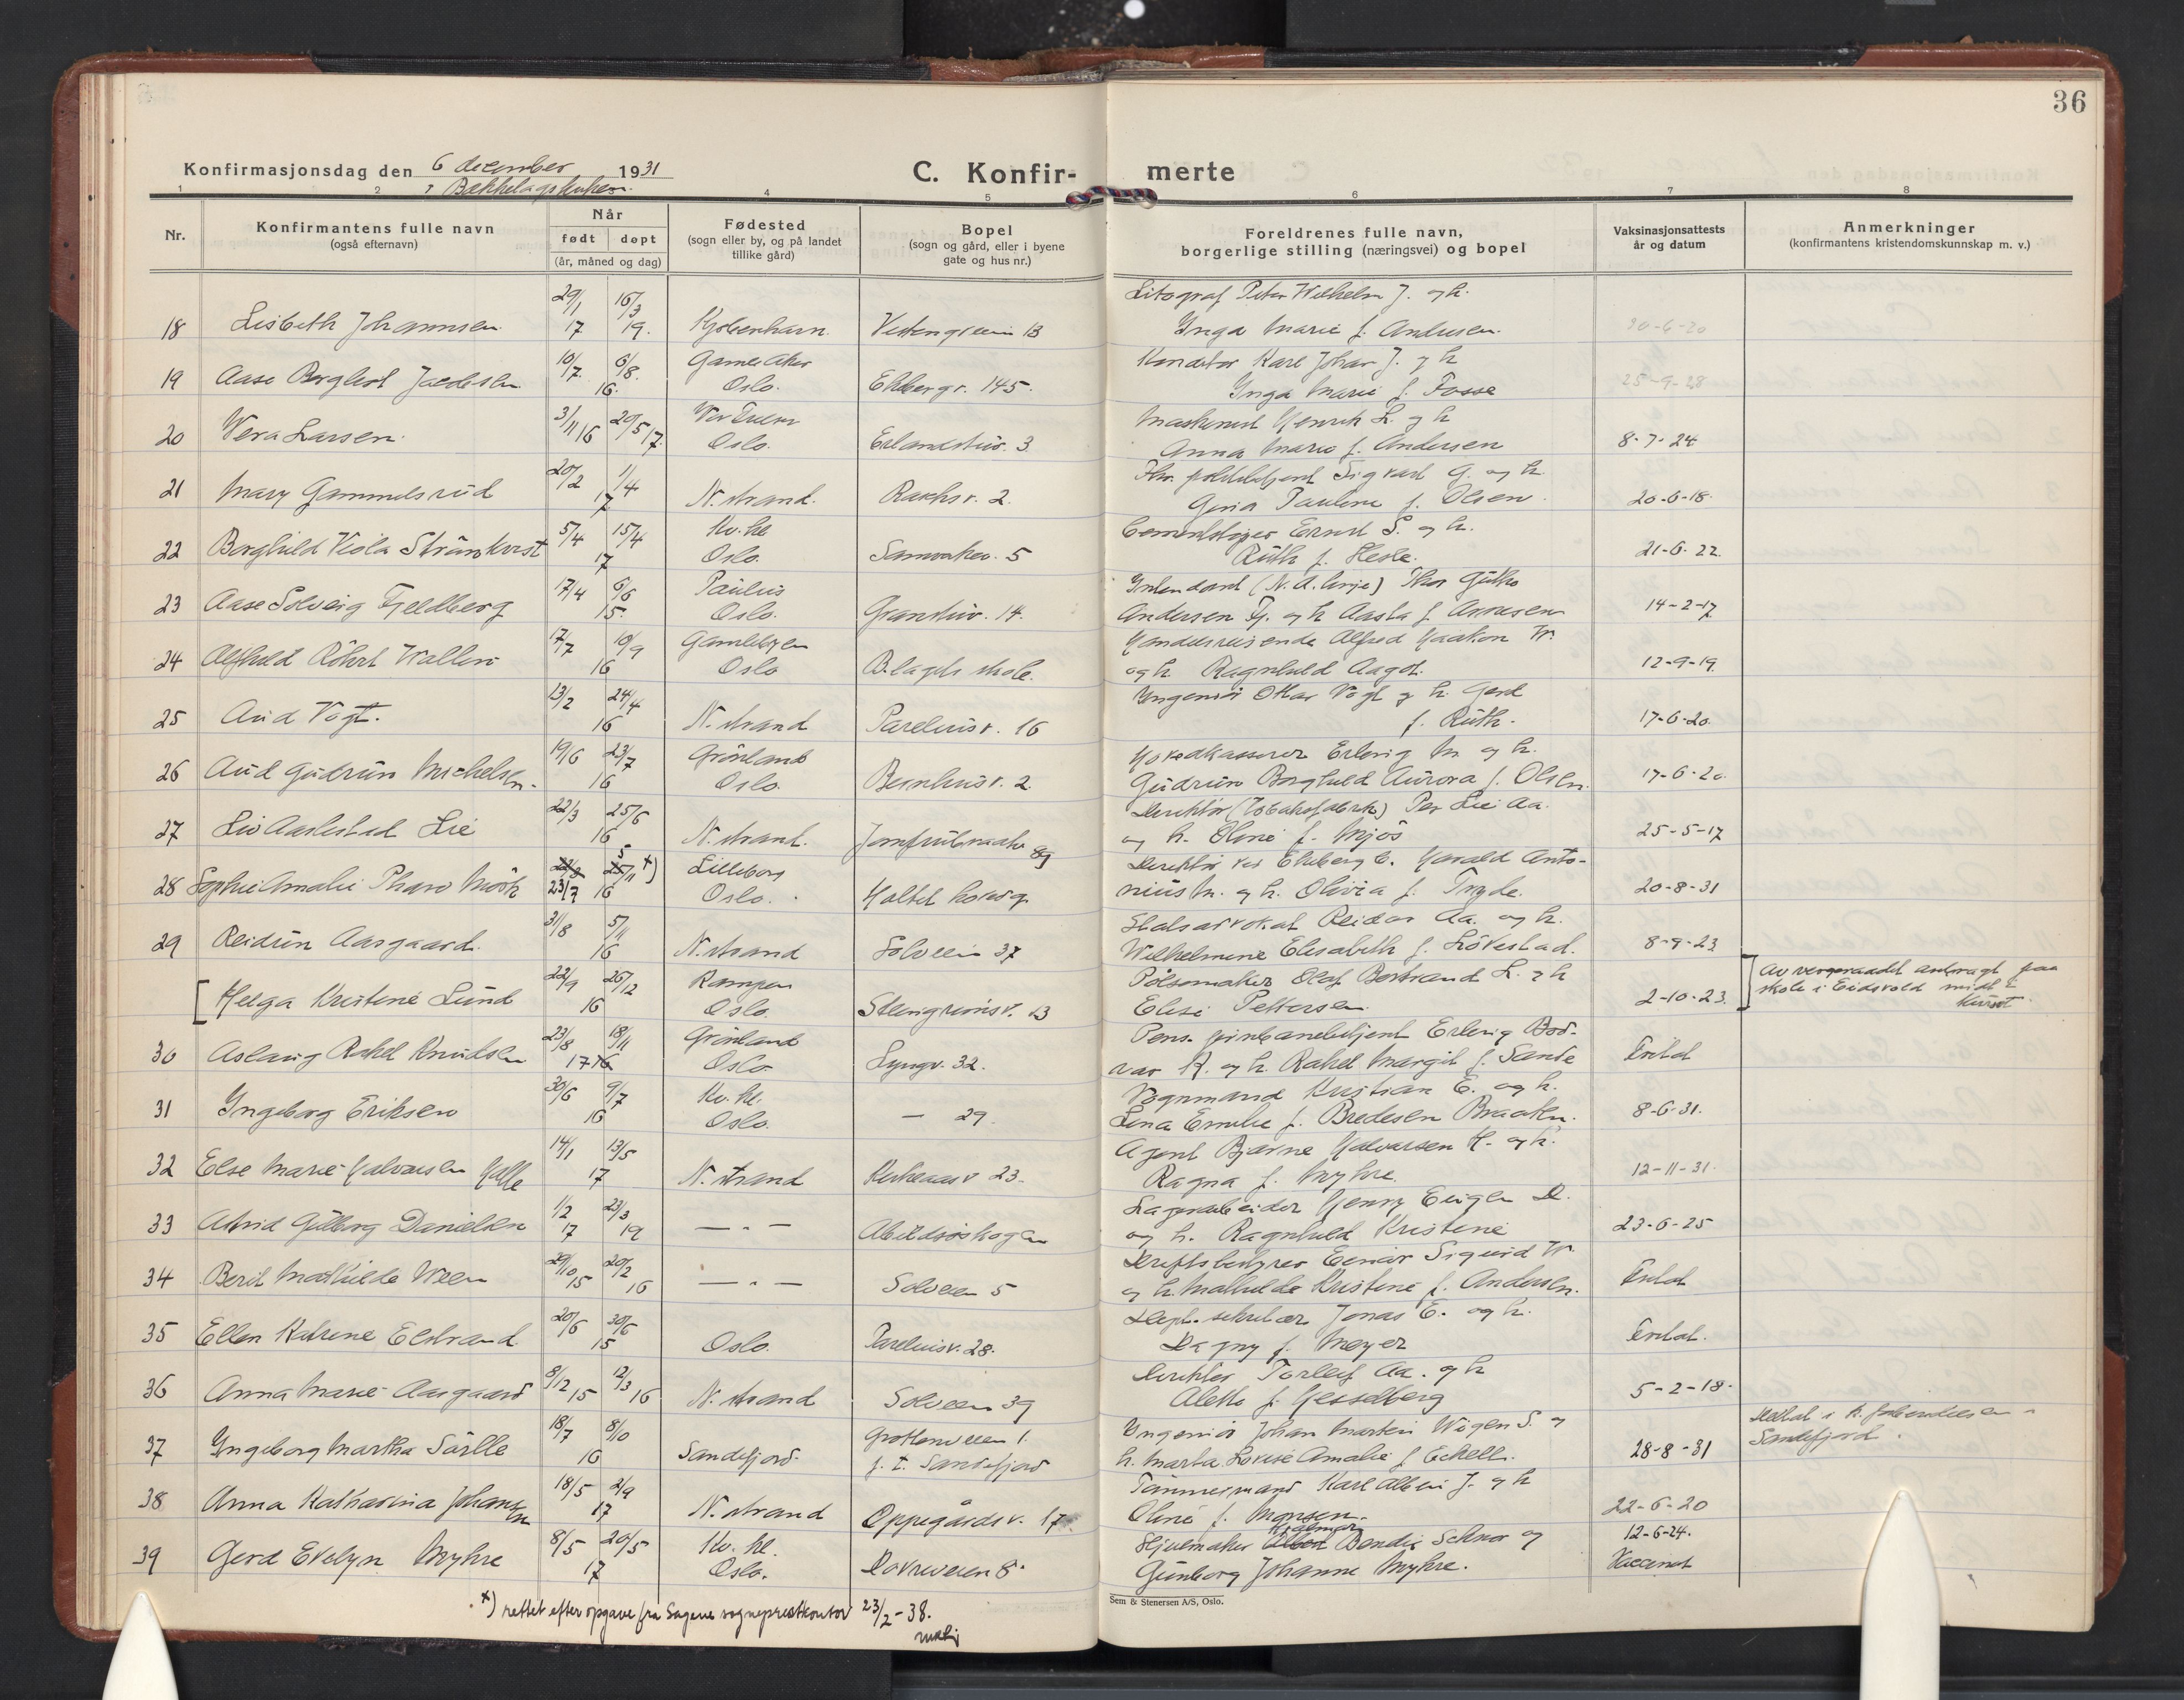 36
Konfirmasjonsdag den 6 december 1931
C. Konfir-
merte
1 2 3 4 5 6 7 8
Nr.
Konfirmantens fulle navn
(også efternavn)
Når
født døpt
(år, måned og dag)
Fødested
(sogn eller by, og på landet
tillike gård)
Bopel
(sogn og gård, eller i byene
gate og hus nr.)
Foreldrenes fulle navn,
borgerlige stilling (næringsvei) og bopel
Vaksinasjonsattests
år og datum
Anmerkninger
(konfirmantens kristendomskunnskap m. v.)
29/1 16/3 Litograf Peter Wilhelm J. og h.
18 Lisbeth Johannsen 17 19. Kjøbenhavn. 13 Inga Marie f. Andresen. 30-6-20
10/7. 6/8. Gamle Aker Konditor Karl Johan J. og h
19 Aase Borghist Jacobsen 16. Oslo. Ekebergv. 145. Inga Marie f. Fosse 25-9-28
3/11 16 20/5 17. Vor Frelser Maskinist Henrik L. og h
20 Vera Larsen. Oslo. Erlandstuv. 3. Anna Marie f. Andersen 8-7-24
20/2 1/4 Sigvart G. og h.
21 Mary Gammelsrud 17 N. strand. Raschs v. 2. Paulene f. Olsen. 20-6-18.
5/4 15/4 Kv. kl. Ernst S. og h.
22 Borghild Viola Strömkvist 17 Oslo. 5 Ruth f. Hesle. 21-6-22.
17/4 6/6 Paulus Intendant (N. A. linje) Thor Gutho
23 Aase Solveig Fjeldberg 15. Oslo. Granstuv. 14. Andersen Fj. og h Aasta f. Arnesen 14-2-17
17/7 10/9 Gamlebyen Handelsreisende Alfred Haakon W.
24 Alfhild Röhrt Wallen 16 Oslo B.lagets skole. og h. Ragnhild Aagot. 12-9-19.
13/2 24/4 Ingeniör Ottar Vogt og h. Gerd
25 Aud Vogt. 16 N. strand Pareliusv. 16 f. Ruth. 17-6-20.
19/6 23/7 Grönland Hovedkasserer Erling M. og h.
26 Aud Gudrun Michelsen. 16 Oslo. v. 2. Gudrun Borghild Aurora f. Olsen. 17-6-20.
22/3 25/6 Direktör (Tobaksfabrik) Per Lie Aa.
27 Liv Aarlestad Lie 16 N. strand. Jomfrubraaten 89 og h. Oline f. Mjös 25-5-17
5/11 x) Lilleborg Direktör ved Ekeberg b. Harald Anto-
28 Sophie Amalie Pharo Mörk 23/7 16 Oslo. Holtet hovedg. nius M. og h. Olivia f. Tryde. 20-8-31
31/8 5/11 Statsadvokat Reidar Aa. og h.
29 Reidun Aasgaard. 16 N. strand Solveien 37 Wilhelmine Elisabeth f. Lövestad. 8-9-23
22/9 26/12 Kampen Pölsemaker Olaf Bertrand L. og h
[ Helga Kristine Lund 16 Oslo. Stengrimsv. 13 Elise Pettersen 2-10-23. ] Av vergeraadet anbragt paa
skole i Eidsvold midt i
kurset.
23/8 18/11 Grönland Pens. jernbanebetjent Erling Böd-
30 Aslaug Rakel Knudsen 17 16 Oslo Lyngv. 32. var K. og h. Rakel Margit f. Sande Fritat
30/6 9/7 Kv. kl. Vognmand Kristian E. og h.
31 Ingeborg Eriksen 16 Oslo. — 29. Lina Emilie f. Bredesen Braaten. 8-6-31.
14/1 13/5 Agent Bjarne Halvorsen H. og h.
32 Else Marie Halvorsen Halle 17 N. strand Kirkeaasv 23. Ragna f. Myhre. 12-11-31.
1/2 23/3 Lagerarbeider Henry Eugen D.
33 Astrid Gulborg Danielsen 17 19 — " — Abildsöskogen og h. Ragnhild Kristine 23-6-25
29/10 20/2 Driftsbestyrer Einar Sigurd W.
34 Berit Mathilde Ween 15 16 — " — Solveien 5 og h. Mathilde Kristine f. Andersen. Fritat
20/6 30/6 Dept. sekretær Jonas E. og h.
35 Ellen Katrine Elstrand 15 Oslo. Pareliusv. 28. Dagny f. Meyer Fritat.
8/12 12/3 Direktör Torleif Aa. og h
36 Anna Marie Aasgaard 15 16 N. strand Solveien 39 Alette f. Hesselberg 5-2-18.
18/7 8/10 Grottenveien 1. Ingeniör Johan Martin Wigen S. og
37 Ingeborg Martha Sörlle 16 Sandefjord f. t. Sandefjord h. Marta Lovise Amalie f. Eckell. 28-8-31 Deltat i k. forberedelsen i
Sandefjord.
18/5 2/9 Tömmermand Karl Albin J. og h
38 Anna Katharina Johansen 17 N. strand Oppegårdsv. 17 Oline f. Monsen. 22-6-20
8/5 20/5 Kv. kl. Hjulmaker Hjalmar Bendix Schnor og 12-6-24.
39 Gerd Evelyn Myhre 17 Oslo. Dovreveien 8. Gunborg Johanne Myhre. Vaccinert
x) rettet efter opgave fra Sagene sogneprestkontor 23/2-38.
Sem & Stenersen A/S, Oslo.